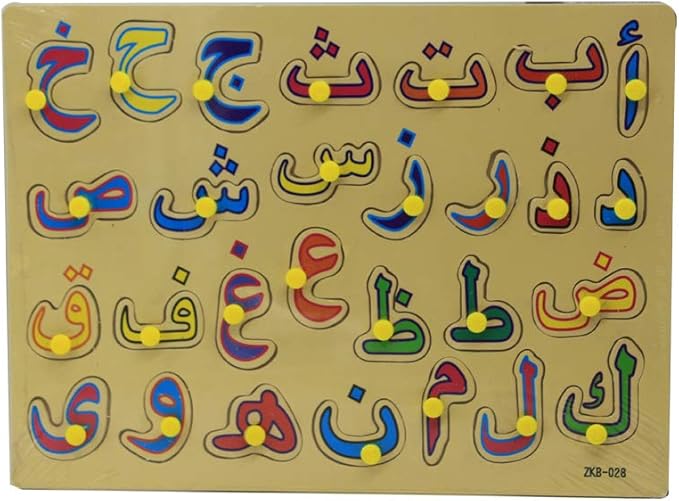 أ ب ت ث ج ح خ
د ذ ر ز س ش ص
ض ط ظ ع غ ف ق
ك ل م ن هـ و ى
ZKB-028